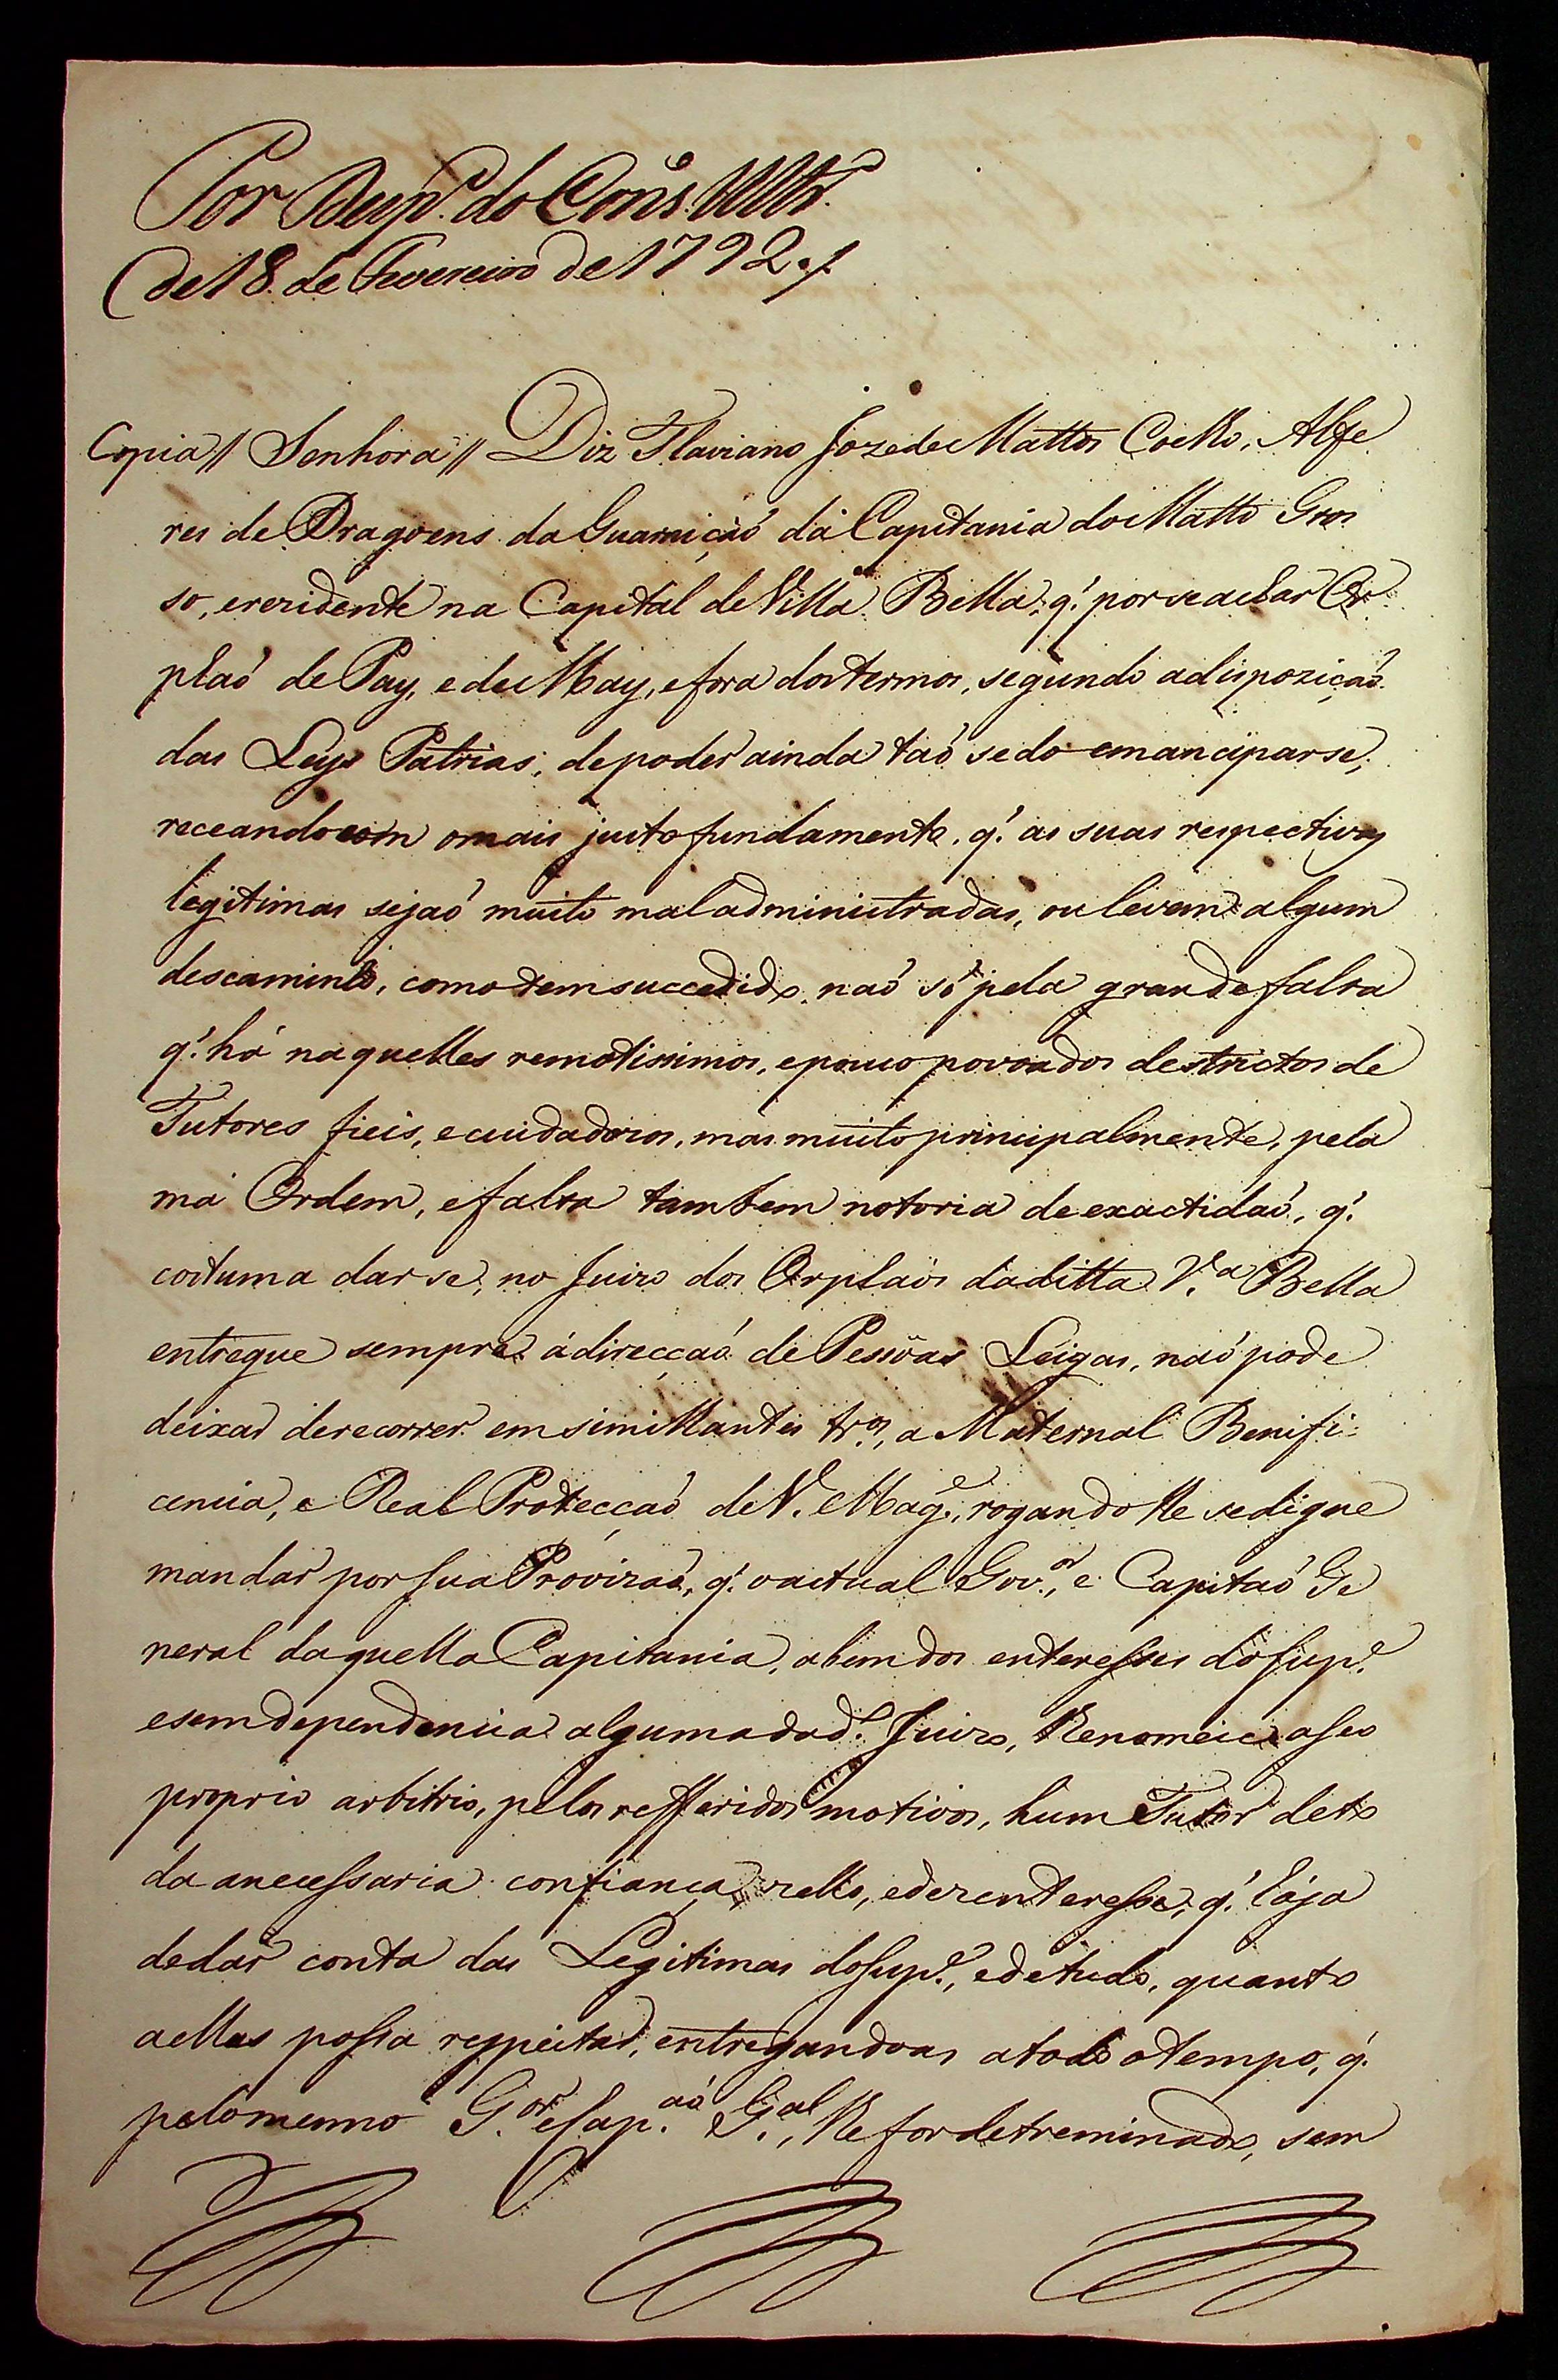 Por Desp.º do Cons.º Ultr.º
de 18. de Fevereiro de 1792.
Copia // Senhora // Diz Flaviano Joze de Mattos Coelho, Alfe
res de Dragoens da Guarniçaõ da Capitania do Matto Gros
so, e rezidente na Capital de Villa Bella; q.' por se achar Or
phaõ de Pay, e de May, e fora dos termos, segundo a dispoziçaõ
das Leys Patrias, de poder ainda taõ sedo emanciparse;
receando com o mais justo fundamento, q.' as suas respectivas
legitimas sejaõ muito mal administradas, ou levem algum
descaminho, como tem succedido, naõ só pela grande falta
q.' há naquelles remotissimos, e pouco povoados destrictos de
Tutores fieis, e cuidadozos, mas muito principalmente, pela
má Ordem, e falta tambem notoria de exactidaõ, q.'
costuma darse, no Juizo dos Orphaõs da ditta V.ª Bella
entregue sempre á direcçaõ de Pessöas Leigas, naõ pode
deixar de recorrer em similhantes tr.os, a Maternal Benifi:
cencia, e Real Protecçaõ de V. Mag.e, rogando lhe se digne
mandar por sua Provizaõ, q.' o actual Gov.or, e Capitaõ Ge
neral daquella Capitania, a bem dos enteresses do sup.e
e sem dependencia alguma do d.º Juizo, lhe nomeie a seo
proprio arbitrio, pelos refferidos motivos, hum Tutor de to
da a necessaria confiança, zello, e dezenteresse, q.' haja
de dar conta das Legitimas do sup.e, e de tudo, quanto
a ellas possa respeitar, entregandoas a todo o tempo, q.'
pelo mesmo G.or e Cap.aõ G.al, lhe for detreminado, sem